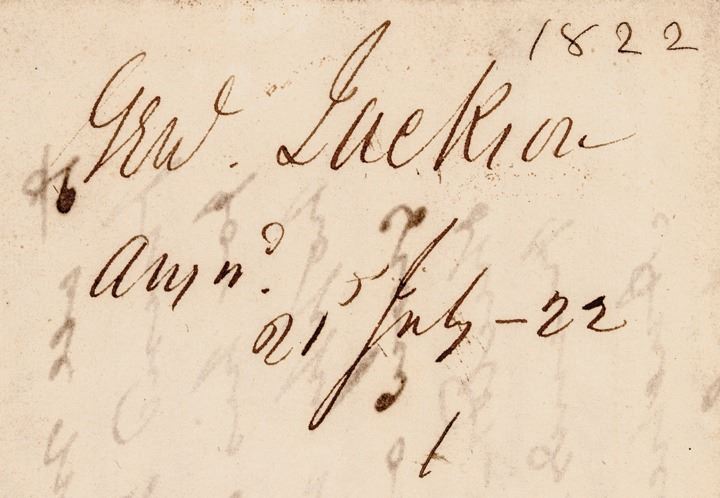 1822
Genl. Jackson
Answd.
21 July - 22